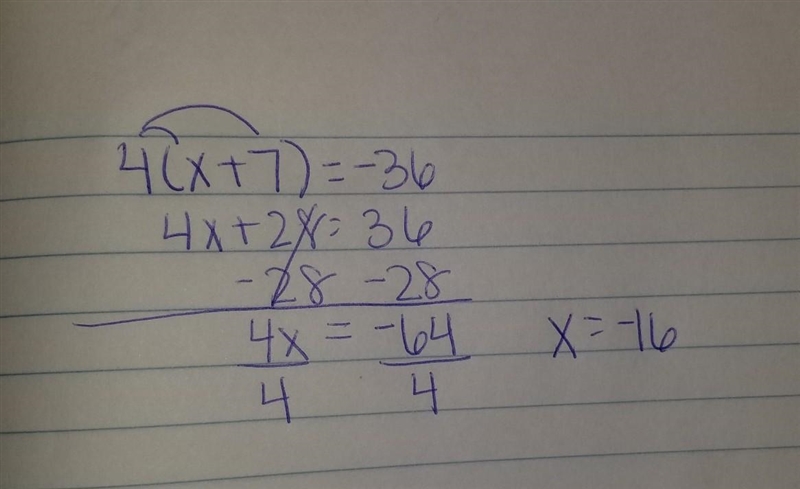 4(x+7)=-36
4x+28=36
-28 -28
4x = -64 x=-16
4 4